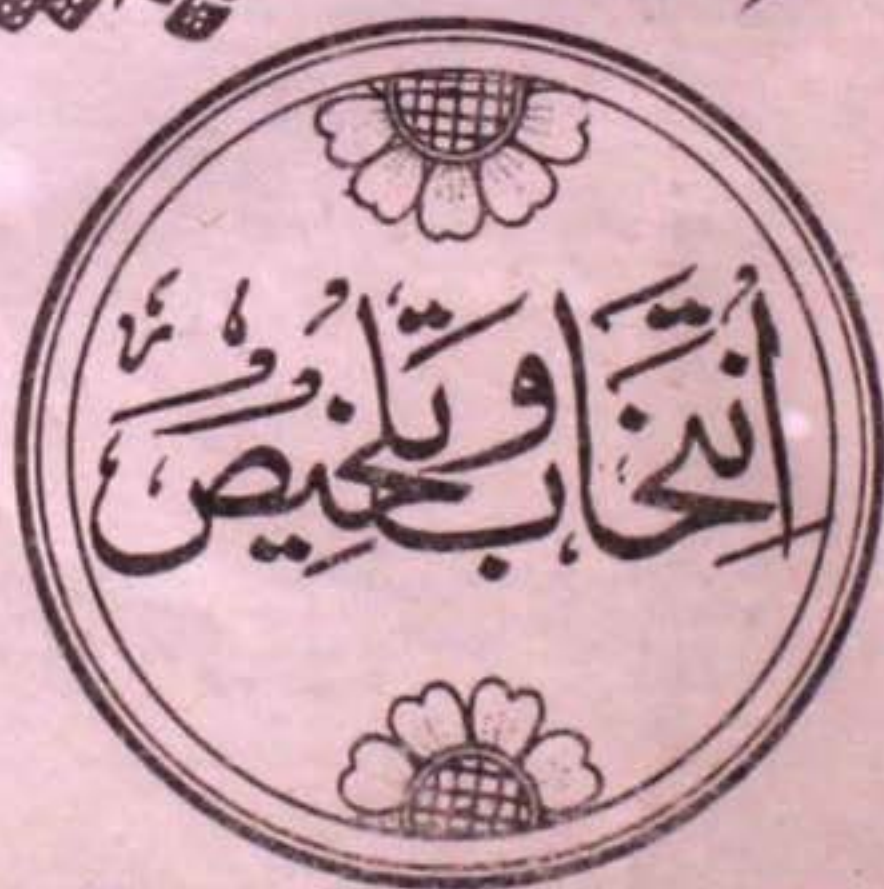 انتخاب و تلخیص